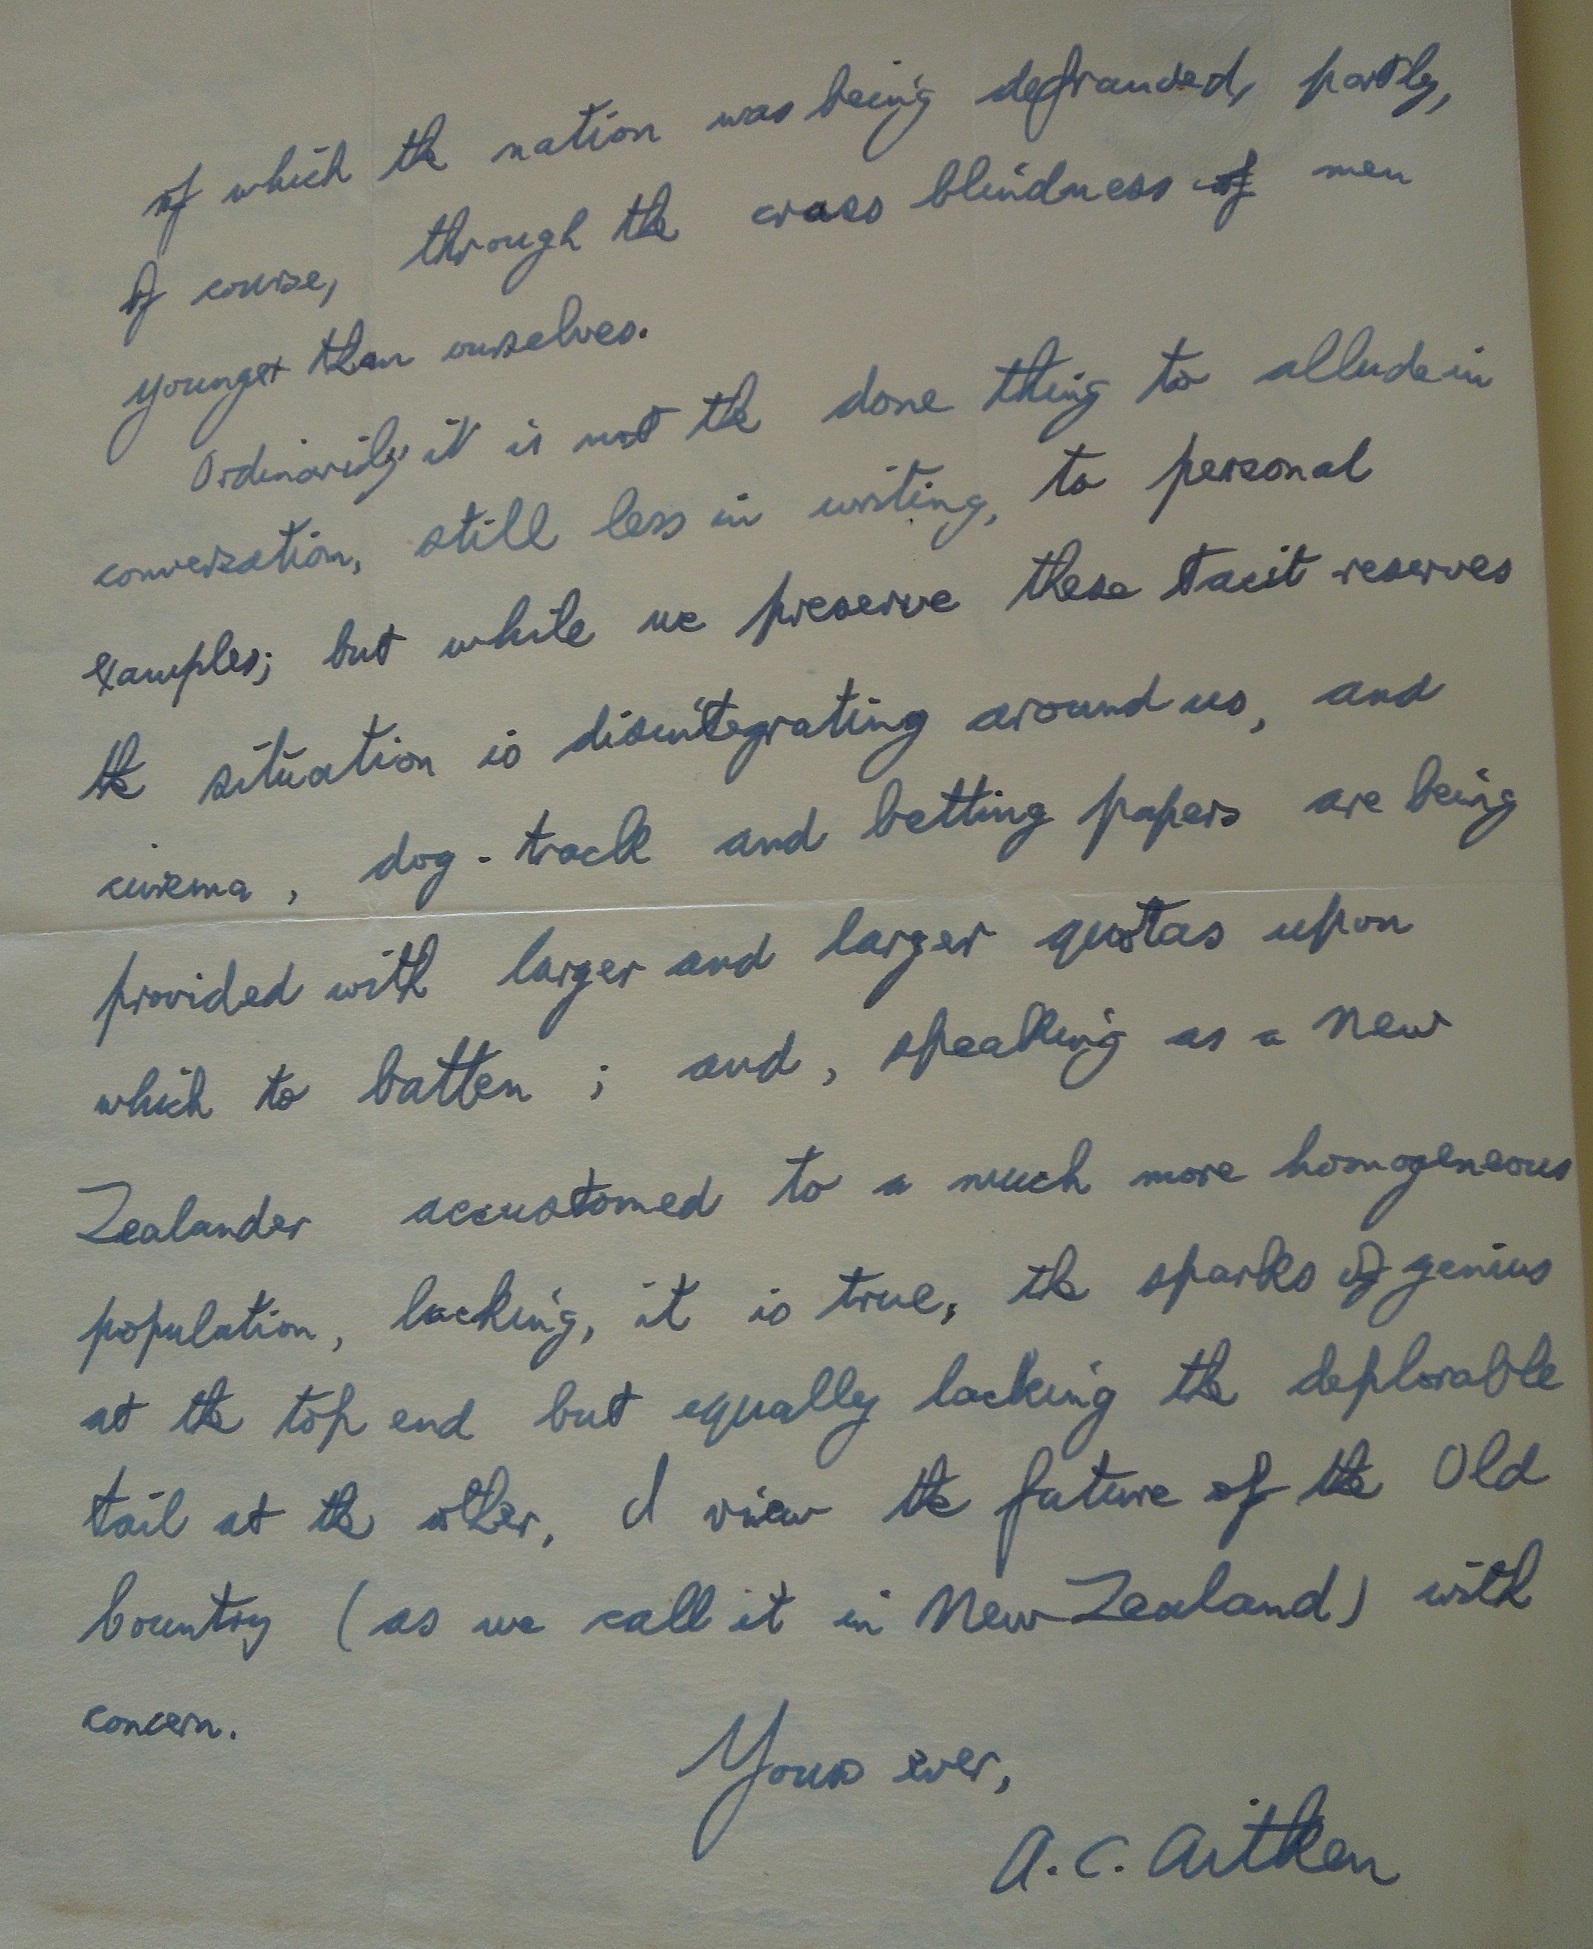 of which the nation was being defrauded, partly,
of course, through the crass blindness of men
younger than ourselves.
Ordinarily it is not the done thing to allude in
conversation, still less in writing, to personal
examples; but while we preserve these tacit reserves
the situation is disintegrating around us, and
cinema, dog-track and betting papers are being
provided with larger and larger quotas upon
which to batten; and, speaking as a New
Zealander accustomed to a much more homogeneous
population, lacking, it is true, the sparks of genius
at the top end but equally lacking the deplorable
tail at the other, I view the future of the Old
Country (as we call it in New Zealand) with
concern.
Yours ever,
A. C. Aitken